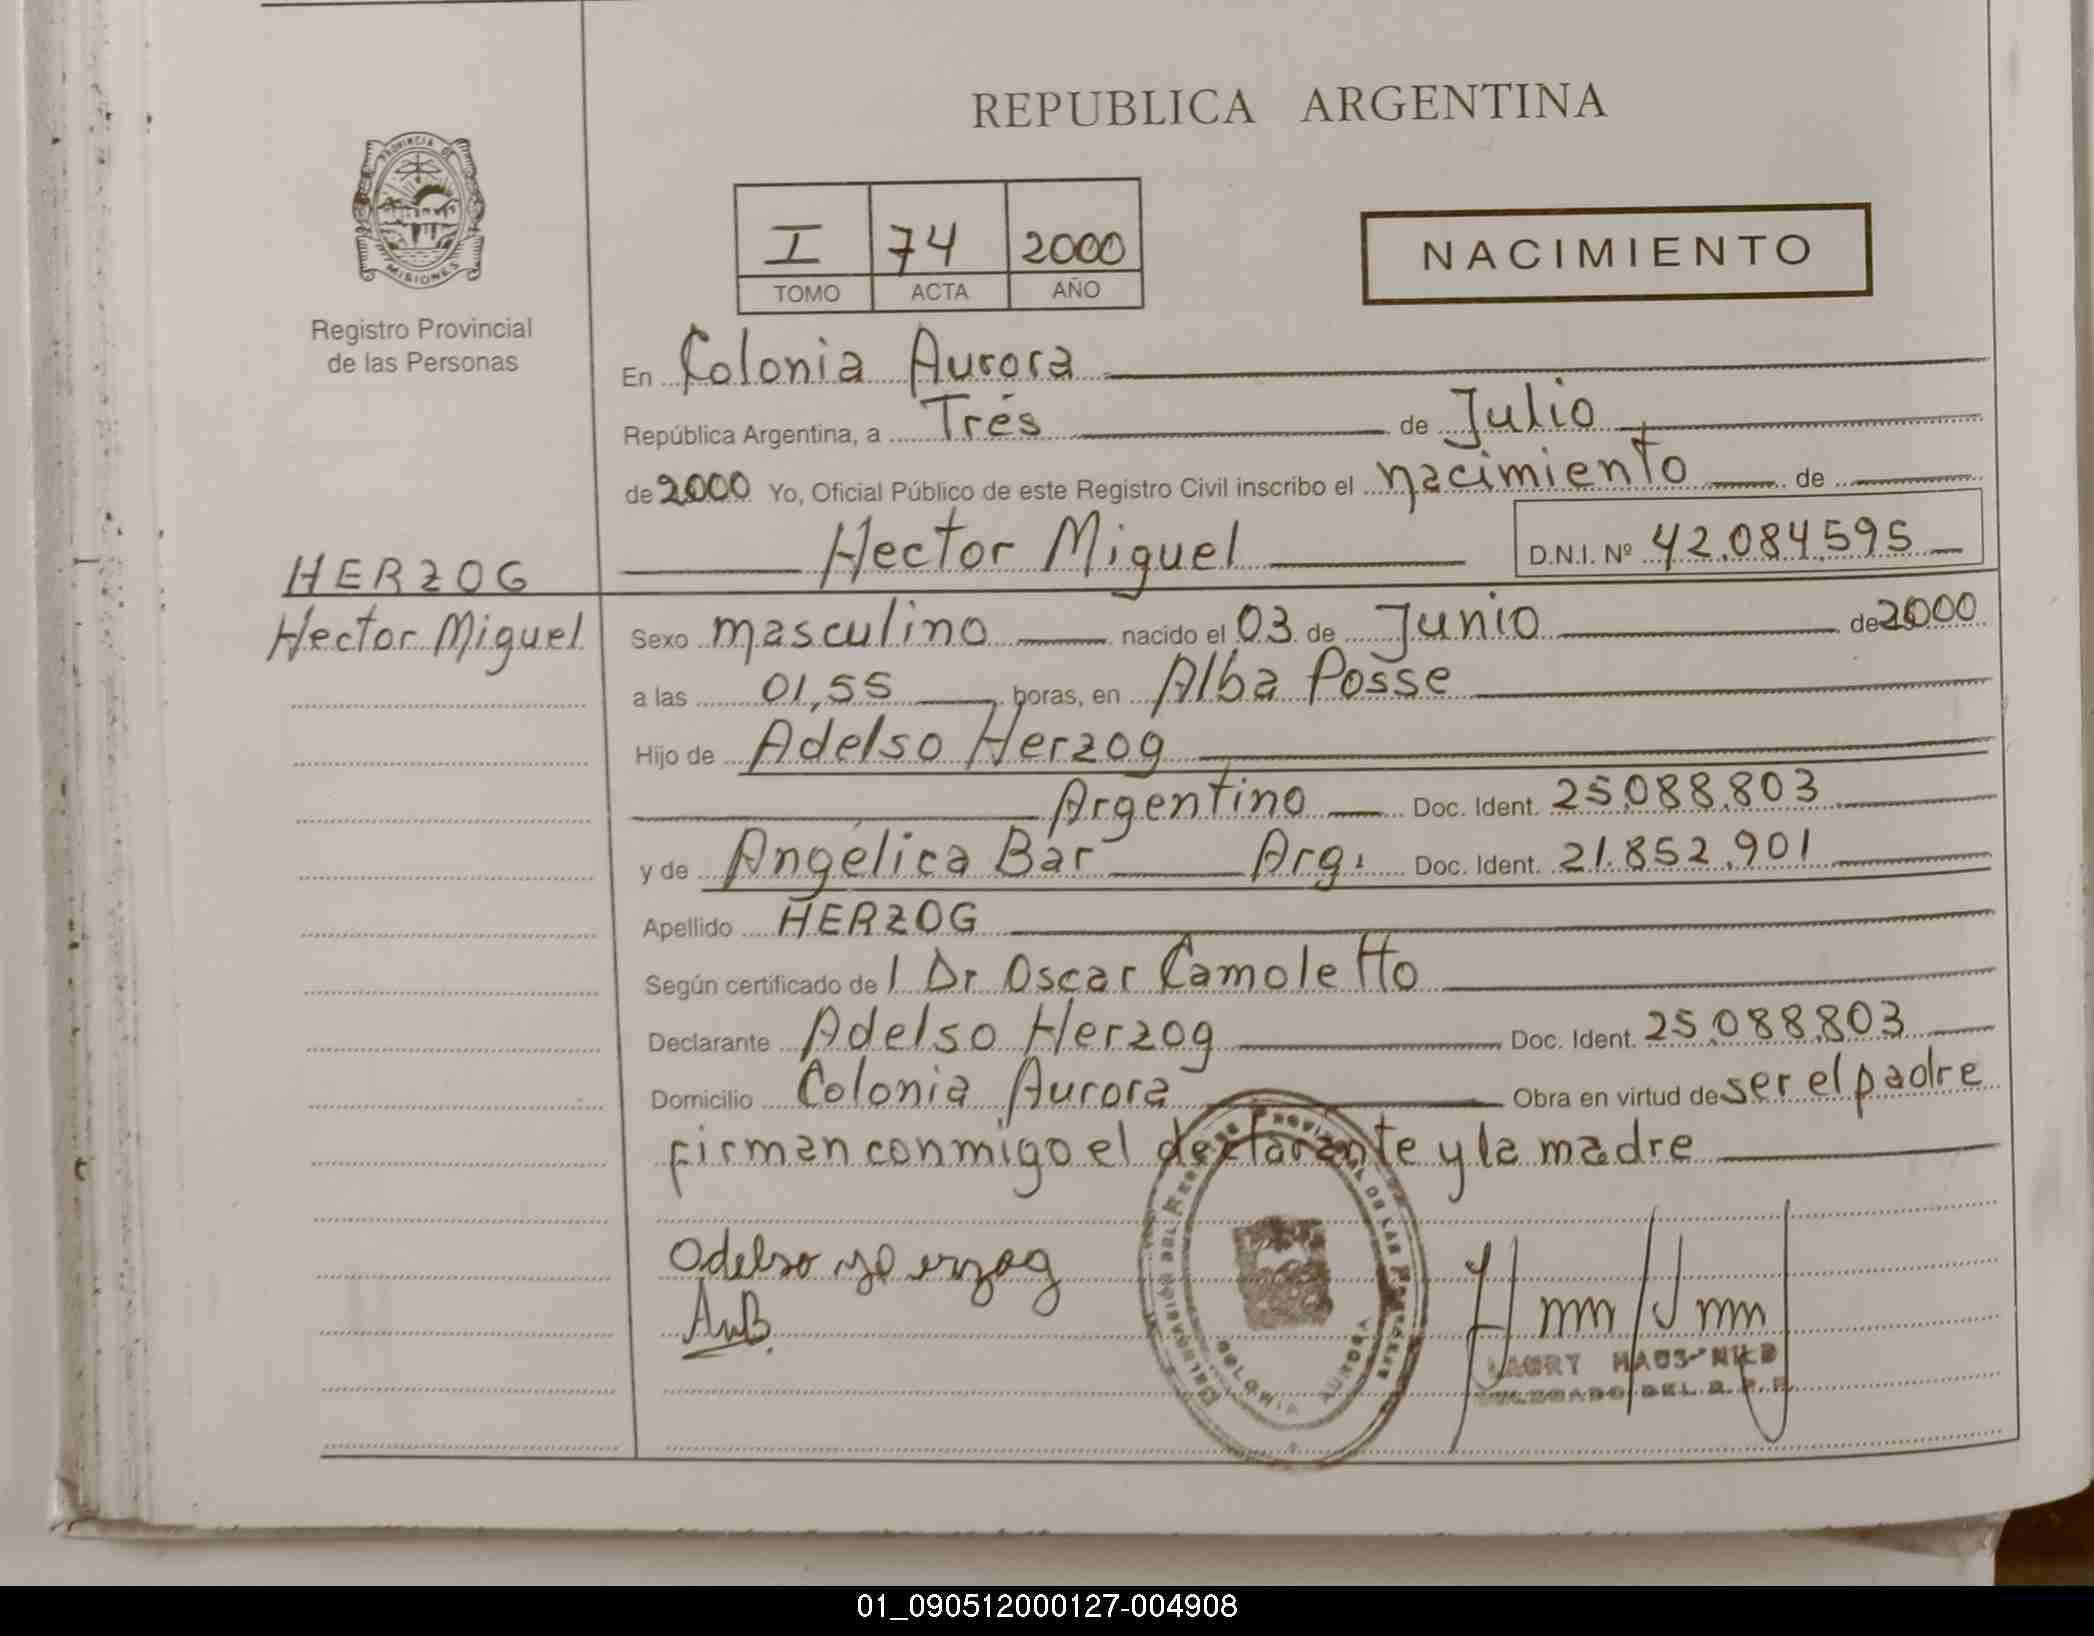 REPUBLICA ARGENTINA
PROVINCIA DE MISIONES
Registro Provincial
de las Personas
I 74 2000
TOMO ACTA AÑO
NACIMIENTO
En Colonia Aurora
República Argentina, a Trés de Julio
de 2000 Yo, Oficial Público de este Registro Civil inscribo el nacimiento de
Hector Miguel D.N.I. Nº 42.084.595
HERZOG
Hector Miguel
Sexo masculino nacido el 03 de Junio de 2000
a las 01,55 horas, en Alba Posse
Hijo de Adelso Herzog
Argentino Doc. Ident. 25.088.803
y de Angélica Bar Arg. Doc. Ident. 21.852.901
Apellido HERZOG
Según certificado de l Dr Oscar Camoletto
Declarante Adelso Herzog Doc. Ident. 25.088.803
Domicilio Colonia Aurora Obra en virtud de ser el padre
firman conmigo el declarante y la madre
Odelso Herzog
AnB.
COLONIA AURORA
DEL R. P. P.
01_090512000127-004908